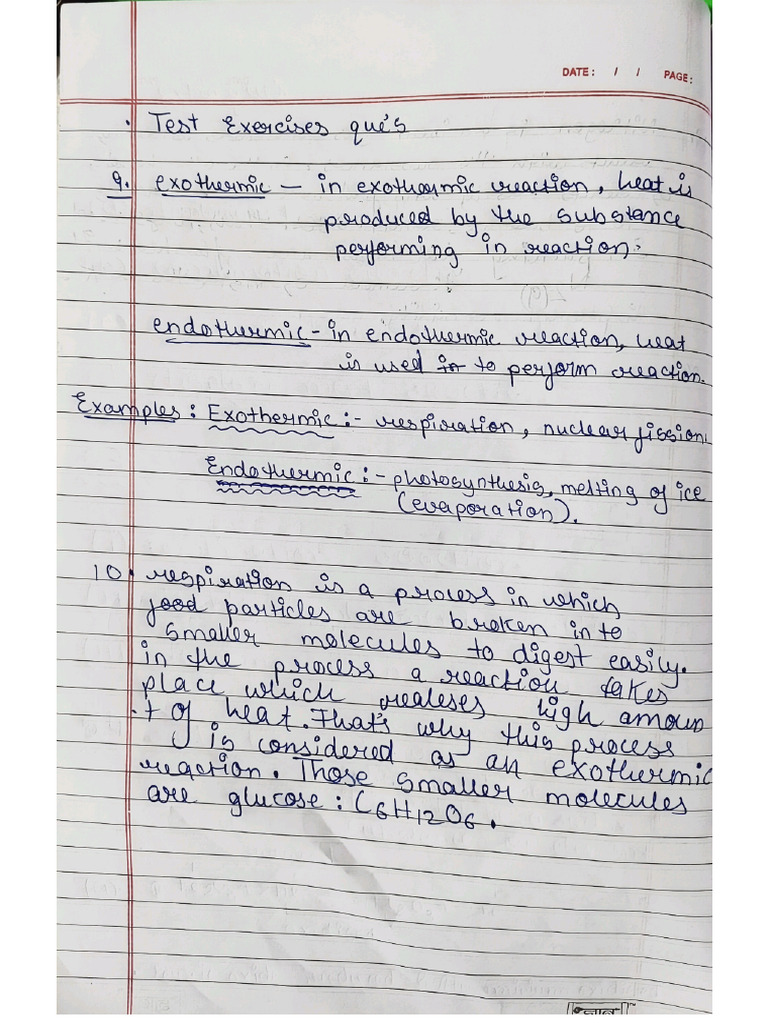 DATE: / / PAGE:
· Test Exercises que's
9. exothermic — in exothermic reaction, heat is
produced by the substance
performing in reaction.
endothermic - in endothermic reaction, heat
is used to perform reaction.
Examples: Exothermic:- respiration, nuclear fission.
Endothermic:- photosynthesis, melting of ice
(evaporation).
10. respiration is a process in which
food particles are broken in to
smaller molecules to digest easily.
in the process a reaction takes
place which realeses high amoun
t of heat. That's why this process
is considered as an exothermic
reaction. Those smaller molecules
are glucose: C6H12O6.